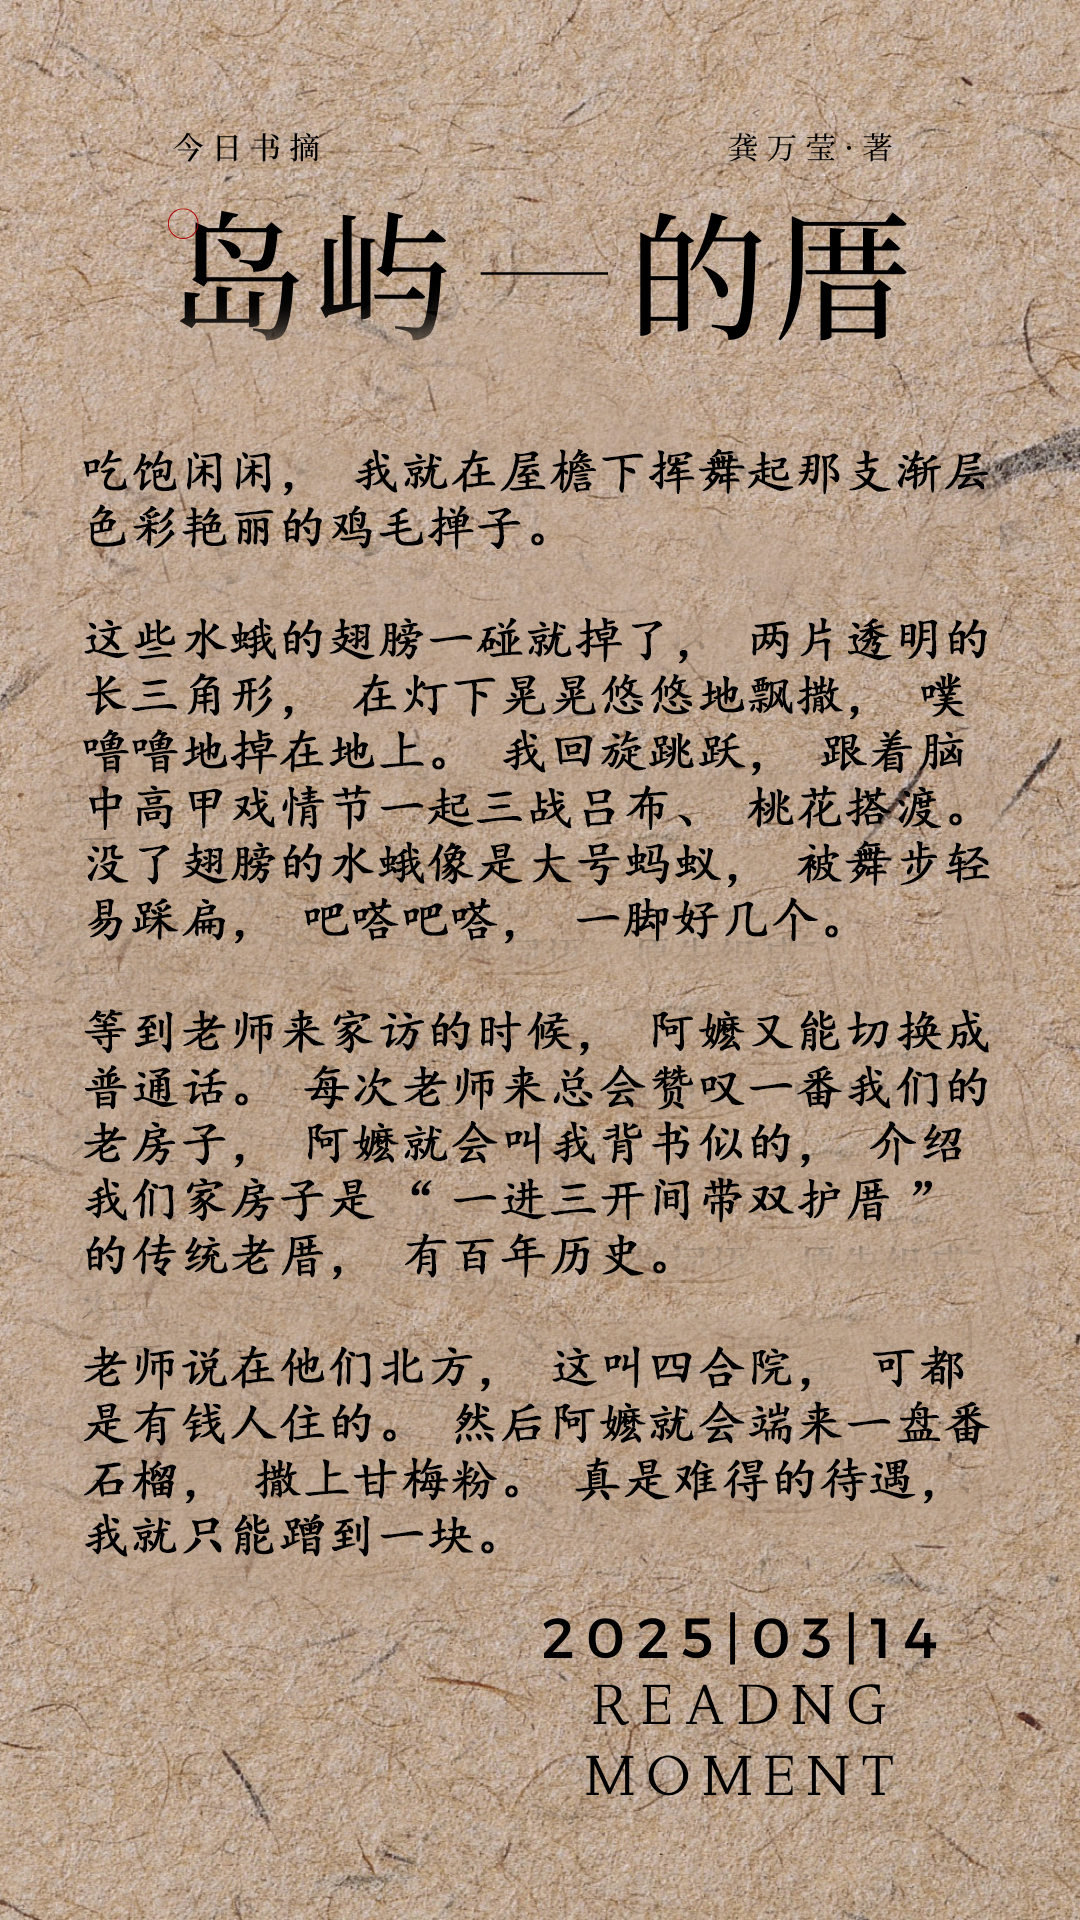 今日书摘
龚万莹·著
岛屿—的厝
吃饱闲闲， 我就在屋檐下挥舞起那支渐层
色彩艳丽的鸡毛掸子。
这些水蛾的翅膀一碰就掉了， 两片透明的
长三角形， 在灯下晃晃悠悠地飘撒， 噗
噜噜地掉在地上。 我回旋跳跃， 跟着脑
中高甲戏情节一起三战吕布、 桃花搭渡。
没了翅膀的水蛾像是大号蚂蚁， 被舞步轻
易踩扁， 吧嗒吧嗒， 一脚好几个。
等到老师来家访的时候， 阿嬷又能切换成
普通话。 每次老师来总会赞叹一番我们的
老房子， 阿嬷就会叫我背书似的， 介绍
我们家房子是 “ 一进三开间带双护厝 ”
的传统老厝， 有百年历史。
老师说在他们北方， 这叫四合院， 可都
是有钱人住的。 然后阿嬷就会端来一盘番
石榴， 撒上甘梅粉。 真是难得的待遇，
我就只能蹭到一块。
2025|03|14
READNG
MOMENT